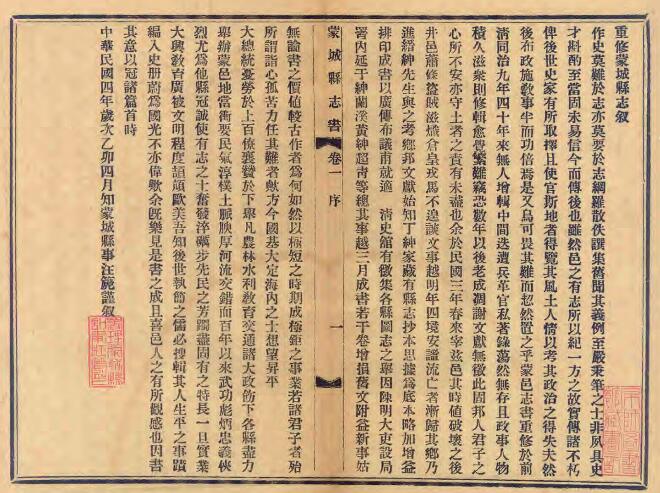 重修蒙城縣志敘
作史莫難於志亦莫要於志網羅散佚譔集舊聞其義例至嚴秉筆之士非夙具史
才斟酌至當固未易信今而傳後也雖然邑之有志所以紀一方之故實傳諸不朽
俾後世史家有所取擇且使官斯地者得覽其風土人情以考其政治之得失夫然
後布政施敎事半而功倍焉是又烏可畏其難而恝然置之乎蒙邑志書重修於前
淸同治九年四十年來無人增輯中間迭遭兵革官私著錄蕩然無存且政事人物
積久滋衆則修輯愈覺繁難竊恐數年以後老成凋謝文獻無徵此固邦人君子之
心所不安亦守土者之責有未盡也余於民國三年春來宰茲邑其時値破壞之後
井邑蕭條盜賊滋熾倉皇戎馬不遑談文事越明年四境安謐流亡者漸歸其鄉乃
進縉紳先生與之考鄉邦文獻始知丁紳家藏有縣志抄本思據為底本略加增益
排印成書以廣傳布議甫就適　淸史館有徵集各縣圖志之舉因陳明大吏設局
署內延于紳蘭溪黃紳超靑等總其事越三月成書若干卷增損舊文附益新事姑
蒙城縣志書　卷一　序　一
無論書之價値較古作者為何如然以極短之時期成極鉅之事業若諸君子者殆
所謂詣心孤苦力任其難者歟方今國基大定海內之士想望昇平
大總統憂勞於上百僚襄贊於下舉凡農林水利敎育交通諸大政飭下各縣盡力
舉辦蒙邑地當衝要民氣淳樸土脈腴厚河流交錯而百年以來武功彪炳忠義俠
烈尤為他縣冠誠使有志之士奮發淬礪步先民之芳躅盡固有之特長一旦實業
大興敎育廣被文明程度頡頏歐美吾知後世執簡之儒必搜輯其人生平之事蹟
編入史册蔚為國光不亦偉歟余旣樂見是書之成且喜邑人之有所觀感也因書
其意以冠諸篇首時
中華民國四年歲次乙卯四月知蒙城縣事汪箎謹敘